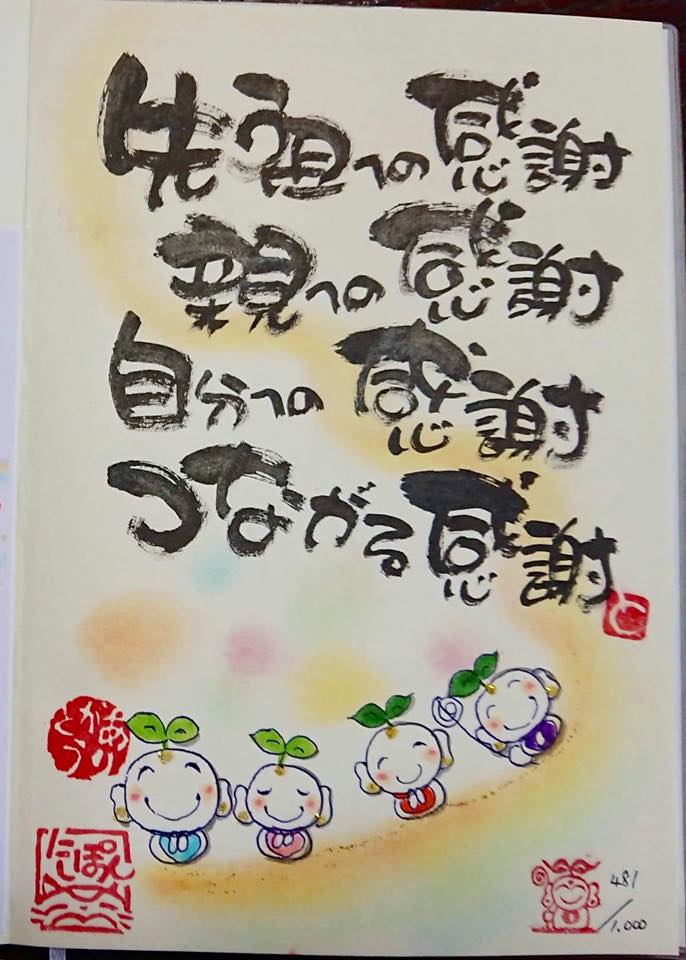 先祖への感謝
親への感謝
自分への感謝
つながる感謝
にしぽん
481/1.000